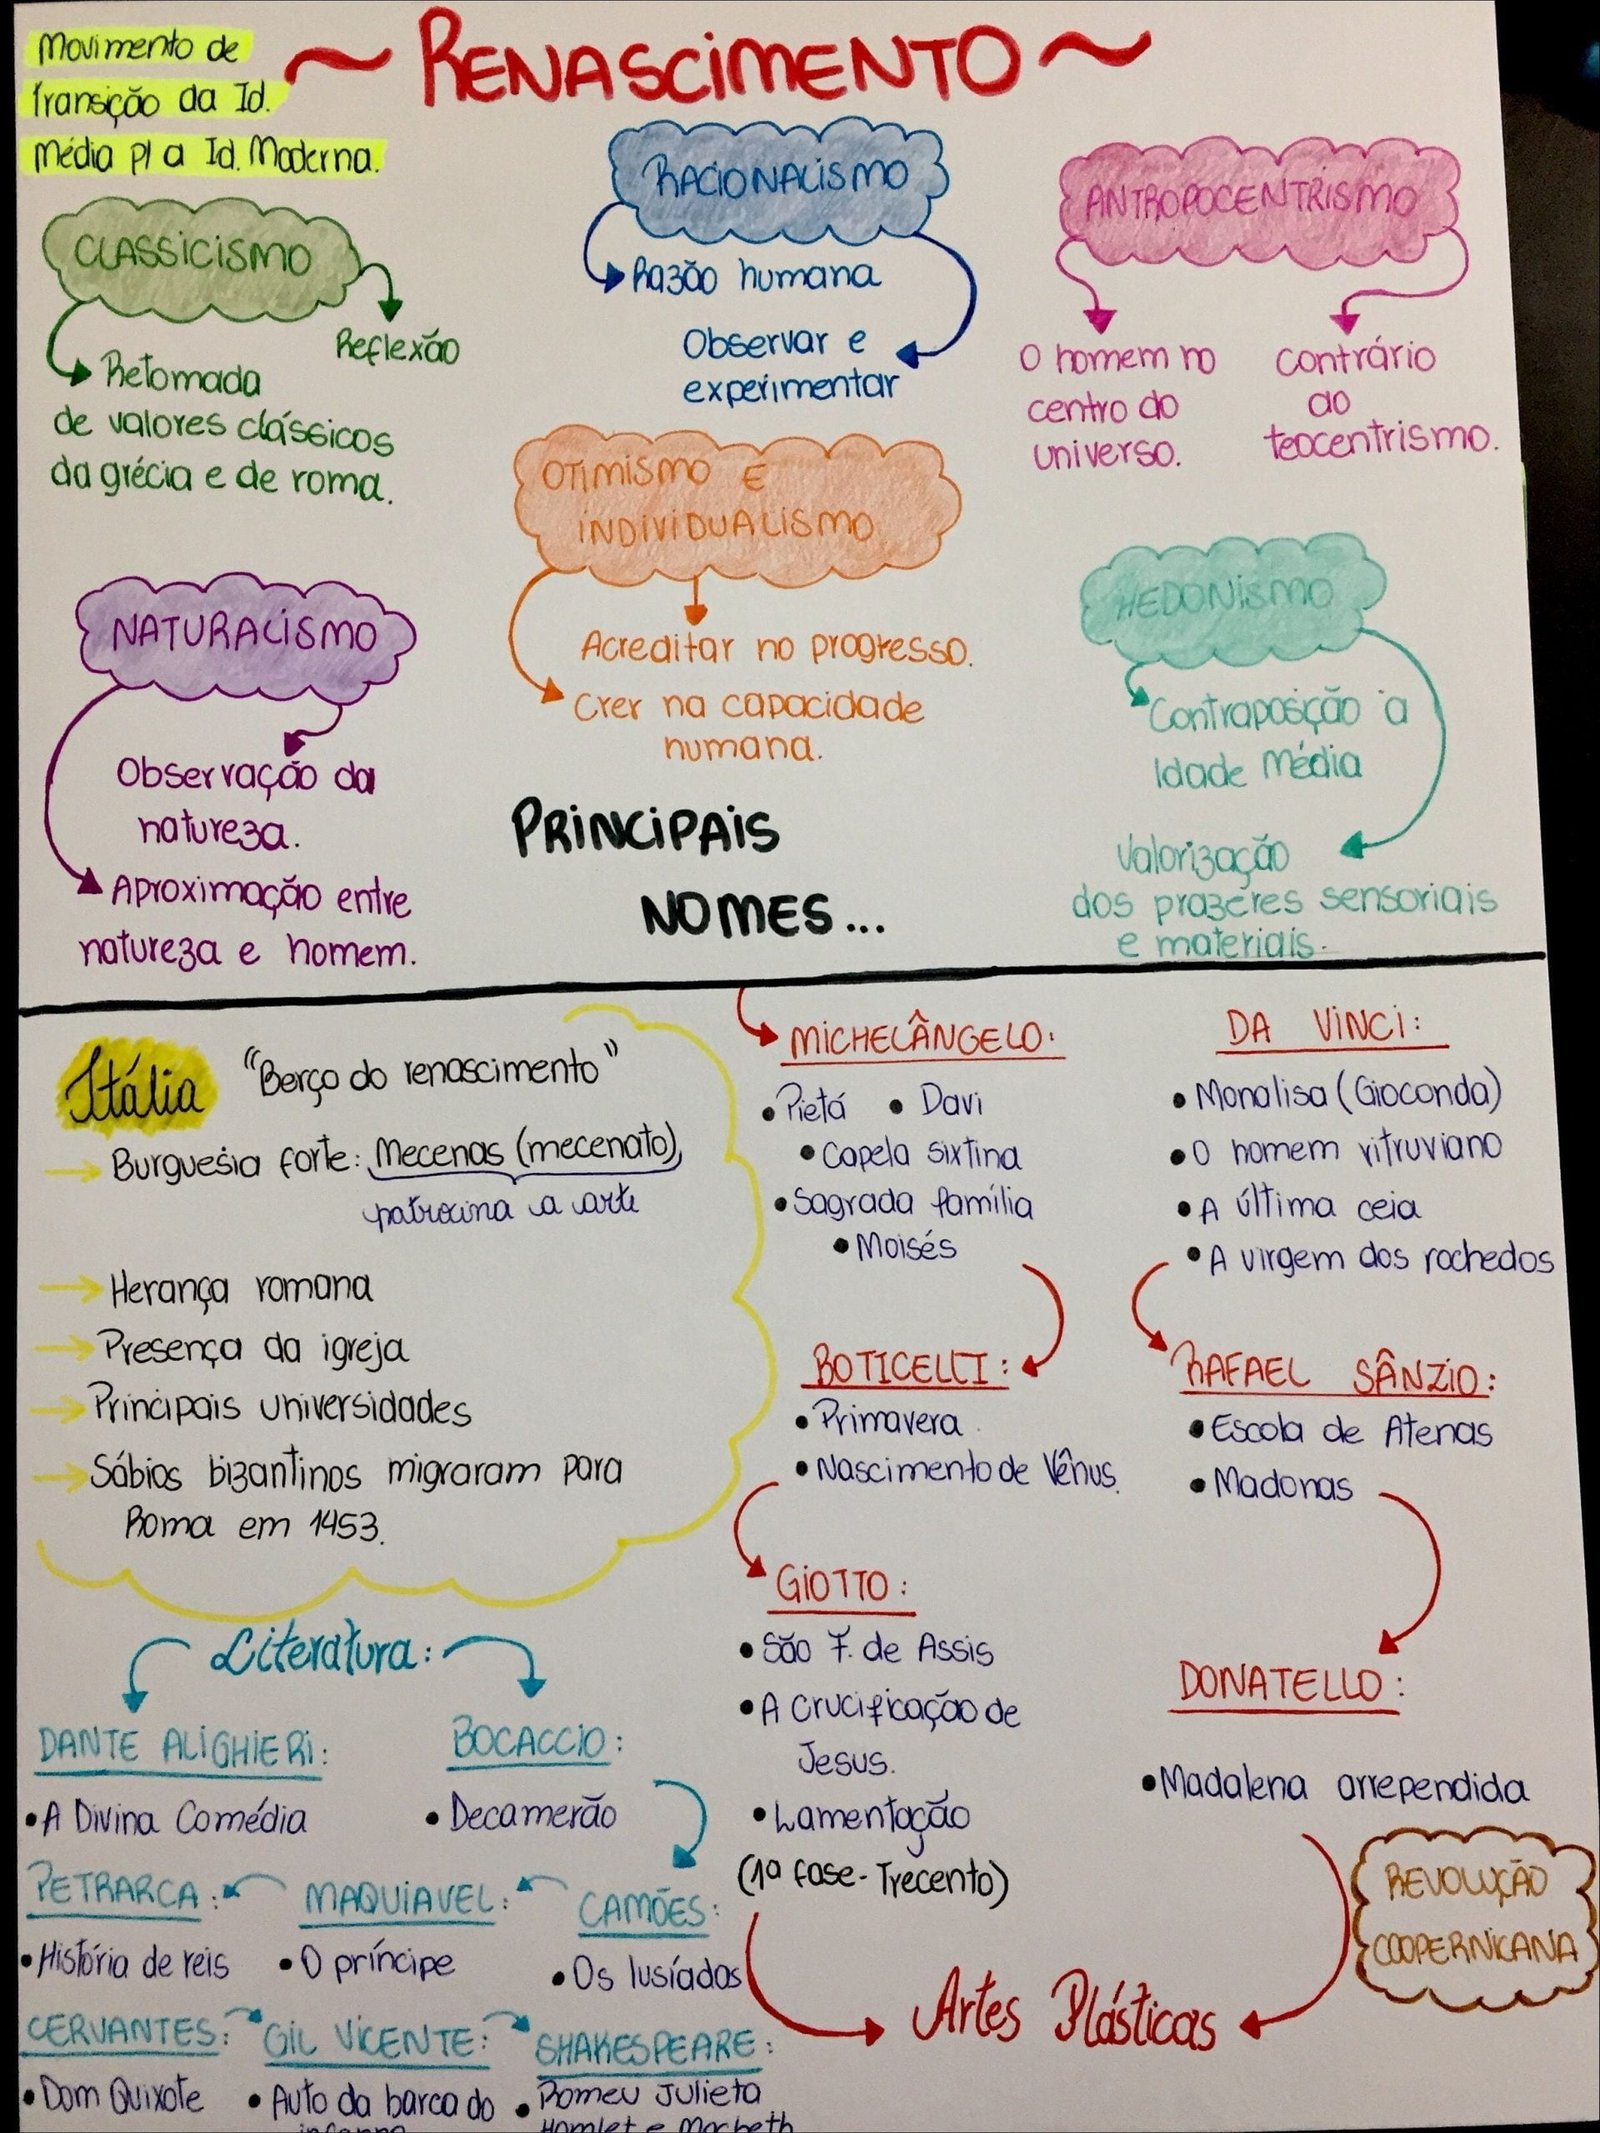 Movimento de
transição da Id.
Média p/ a Id. Moderna.
~ RENASCIMENTO ~
CLASSICISMO
Reflexão
Retomada
de valores clássicos
da grécia e de roma.
RACIONALISMO
Razão humana
Observar e
experimentar
ANTROPOCENTRISMO
O homem no
centro do
universo.
Contrário
ao
teocentrismo.
OTIMISMO E
INDIVIDUALISMO
Acreditar no progresso.
Crer na capacidade
humana.
NATURALISMO
Observação da
natureza.
Aproximação entre
natureza e homem.
HEDONISMO
Contraposição à
Idade Média
Valorização
dos prazeres sensoriais
e materiais.
PRINCIPAIS
NOMES...
Itália "Berço do renascimento"
Burguesia forte: Mecenas (mecenato)
patrocina a arte
Herança romana
Presença da igreja
Principais universidades
Sábios bizantinos migraram para
Roma em 1453.
MICHELÂNGELO:
• Pietá • Davi
• Capela sixtina
• Sagrada família
• Moisés
DA VINCI:
• Monalisa (Gioconda)
• O homem vitruviano
• A última ceia
• A virgem dos rochedos
BOTICELLI:
• Primavera
• Nascimento de Vênus.
RAFAEL SÂNZIO:
• Escola de Atenas
• Madonas
GIOTTO:
• São F. de Assis
• A Crucificação de
Jesus.
• Lamentação
(1ª fase - Trecento)
DONATELLO:
• Madalena arrependida
REVOLUÇÃO
COOPERNICANA
Artes Plásticas
Literatura:
DANTE ALIGHIERI:
• A Divina Comédia
BOCACCIO:
• Decamerão
PETRARCA:
• História de reis
MAQUIAVEL:
• O príncipe
CAMÕES:
• Os lusíadas
CERVANTES:
• Dom Quixote
GIL VICENTE:
• Auto da barca do
inferno
SHAKESPEARE:
• Romeu Julieta
Hamlet e Macbeth